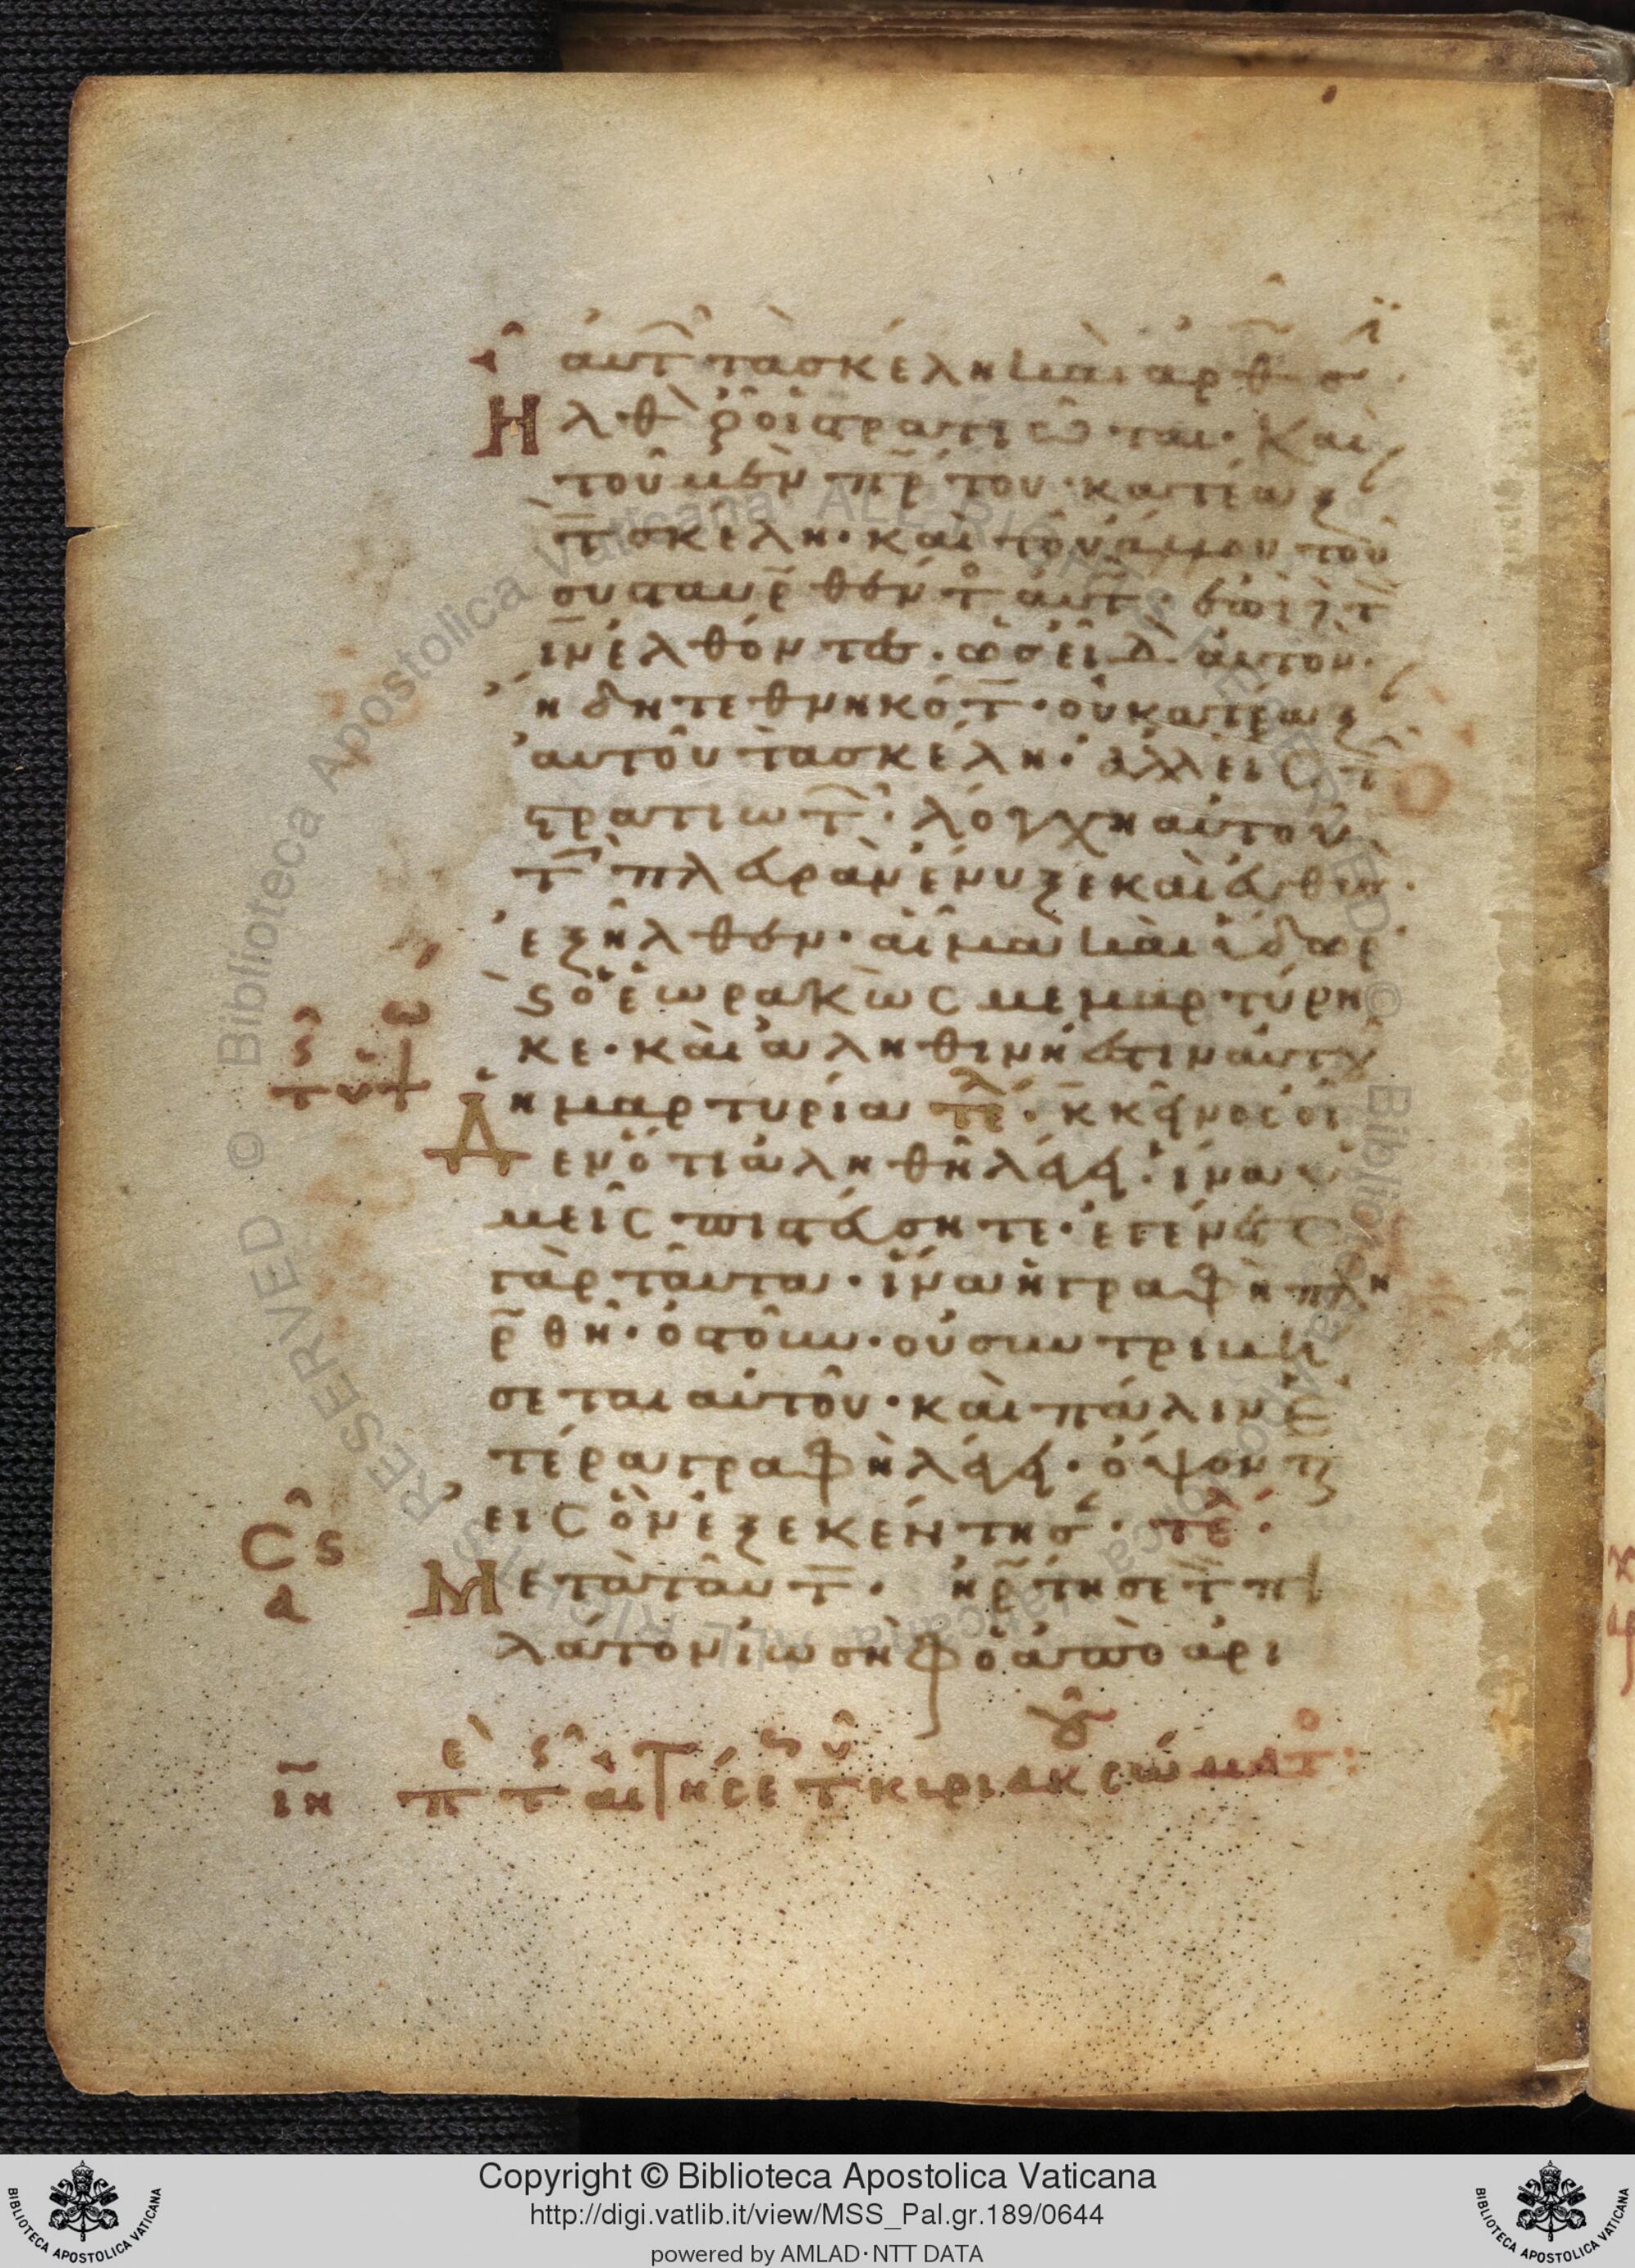 αὐτ τὰ σκέλη καὶ ἀρθῶσ
Ηλθ οὖν οἱ στρατιῶται· Καὶ
τοῦ μὲν πρ του· κατέαξ
τ σκέλη· καὶ τοῦ ἄλλου τοῦ
συσταυρ θέντο αὐτ· ἐπὶ δὲ τ
ιν ἐλθόντες· ὡς εἶδ αὐτὸν
ἤδη τεθνηκότ· οὐ κατέαξ
αὐτοῦ τὰ σκέλη· ἀλλ εἷς τ
στρατιωτ· λόγχη αὐτοῦ
τ πλευρὰν ἔνυξε καὶ εὐθὺς
ἐξῆλθεν· αἷμα καὶ ὕδωρ
ϛ ὁ ἑωρακὼς μεμαρτύρη
κε· καὶ ἀληθινή ἐστιν αὐτοῦ
ἡ μαρτυρία τε· κἀκεῖνος οἶ
Δεν ὅτι ἀληθῆ λέγει· ἵνα ὑ
μεῖς πιστεύσητε· ἐγένετο
γὰρ ταῦτα· ἵνα ἡ γραφὴ πλη
ρ θῆ· ὀστοῦν· οὐ συντριβή
σεται αὐτοῦ· καὶ πάλιν ἑ
τέρα γραφὴ λέγει· ὄψοντ
εἰς ὃν ἐξεκέντησ· τε·
Μετὰ ταῦτ· ἠρ τησε τ πι
λάτον ἰωσὴφ ὁ ἀπὸ ἀρι
Cϛ
Δ
Copyright © Biblioteca Apostolica Vaticana
http://digi.vatlib.it/view/MSS_Pal.gr.189/0644
powered by AMLAD·NTT DATA
BIBLIOTECA APOSTOLICA VATICANA
BIBLIOTECA APOSTOLICA VATICANA